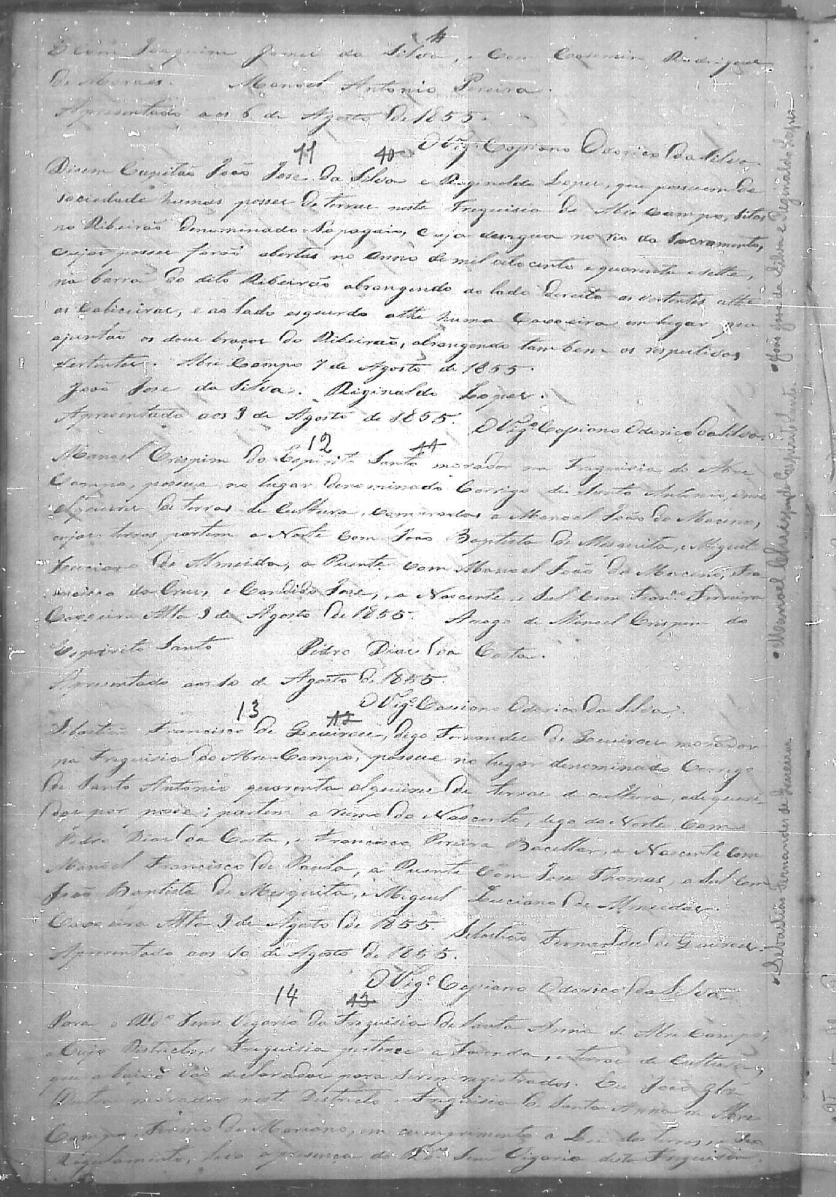 E com Joaquim José da Silva, e com Casemiro Rodrigues
de Moraes. Manoel Antonio Pereira.
Apresentado aos 6 de Agosto de 1855.
O Vigº Cassiano Odorico da Silva
11 40
Dizem Capitão João José da Silva e Reginaldo Lopes, que possuem de
sociedade humas posses de terras nesta Freguisia do Abre Campo, sitas
no Ribeirão denominado Papagaio, cuja desagua no rio do Sacramento,
cujas posses forão abertas no anno de mil oito cento e quarenta e sette,
na barra do dito Ribeirão abrangendo do lado direito as vertentes athe
as Cabiceiras, e ao lado esquerdo athe huma Caxoeira em lugar que
ajuntão os dous braços do Ribeirão, abrangendo tambem os respectivos
vertentes. Abre Campo 7 de Agosto de 1855.
João José da Silva. Riginaldo Lopes.
Apresentado aos 9 de Agosto de 1855. O Vigº Cassiano Odorico da Silva.
12 44
Manoel Crispim do Espirito Santo morador na Freguisia do Abre
Campo, possue no lugar denominado Corrigo de Santo Antonio,
Alqueires de terras de Cultura, compradas a Manoel João do
cujas terras partem a Norte com João Baptista de Mesquita, e Miguel
Luciano de Almeida, a Puente com Manoel João do Fran
cisco da Cruz, e Candido José, e a Nascente e Sul com Franº Ferreira
Caxoeira Alta 9 de Agosto de 1855. Arogo de Manoel Crispim do
Espirito Santo Pedro Dias da Costa.
Apresentado aos 10 de Agosto de 1855.
O Vigº Cassiano Odorico da Silva.
13 42
Sebastião Francisco de Queiroz, digo Fernandes de Queiroz morador
na Freguisia do Abre-Campo, possue no lugar denominado Corrego
de Santo Antonio quarenta alqueires de terras de cultura, adequeri
das por posse; partem a rumo do Nascente, digo do Norte Com
Pedro Dias da Costa, e Francisco Pereira Bacellar, a Nascente com
Manoel Francisco de Paula, a Puente com José Thomas, a Sul com
João Baptista de Mesquita, e Miguel Luciano de Almeida.
Caxoeira Alta 9 de Agosto de 1855. Sebastião Fernandes de Queiroz.
Apresentado aos 10 de Agosto de 1855.
O Vigº Cassiano Odorico da Silva
14 43
Para o Rdº Senr Vigario da Freguisia de Santa Anna do Abre Campo,
a Cujo Destricto, e Freguisia pertence a Fazenda, e terras de Cultura,
que abaixo vão declaradas para serem registradas. Eu João
morador neste Destricto e Freguisia de Santa Anna do Abre
Campo, Termo de Marianna, em cumprimento a Lei das terras, e seo
Regulamento, levo a presença do Rdº Senr Vigario desta Freguisia
João José da Silva e Reginaldo Lopes
Manoel Chrispim do Espirito Santo
Sebastião Fernandes de Queiroz